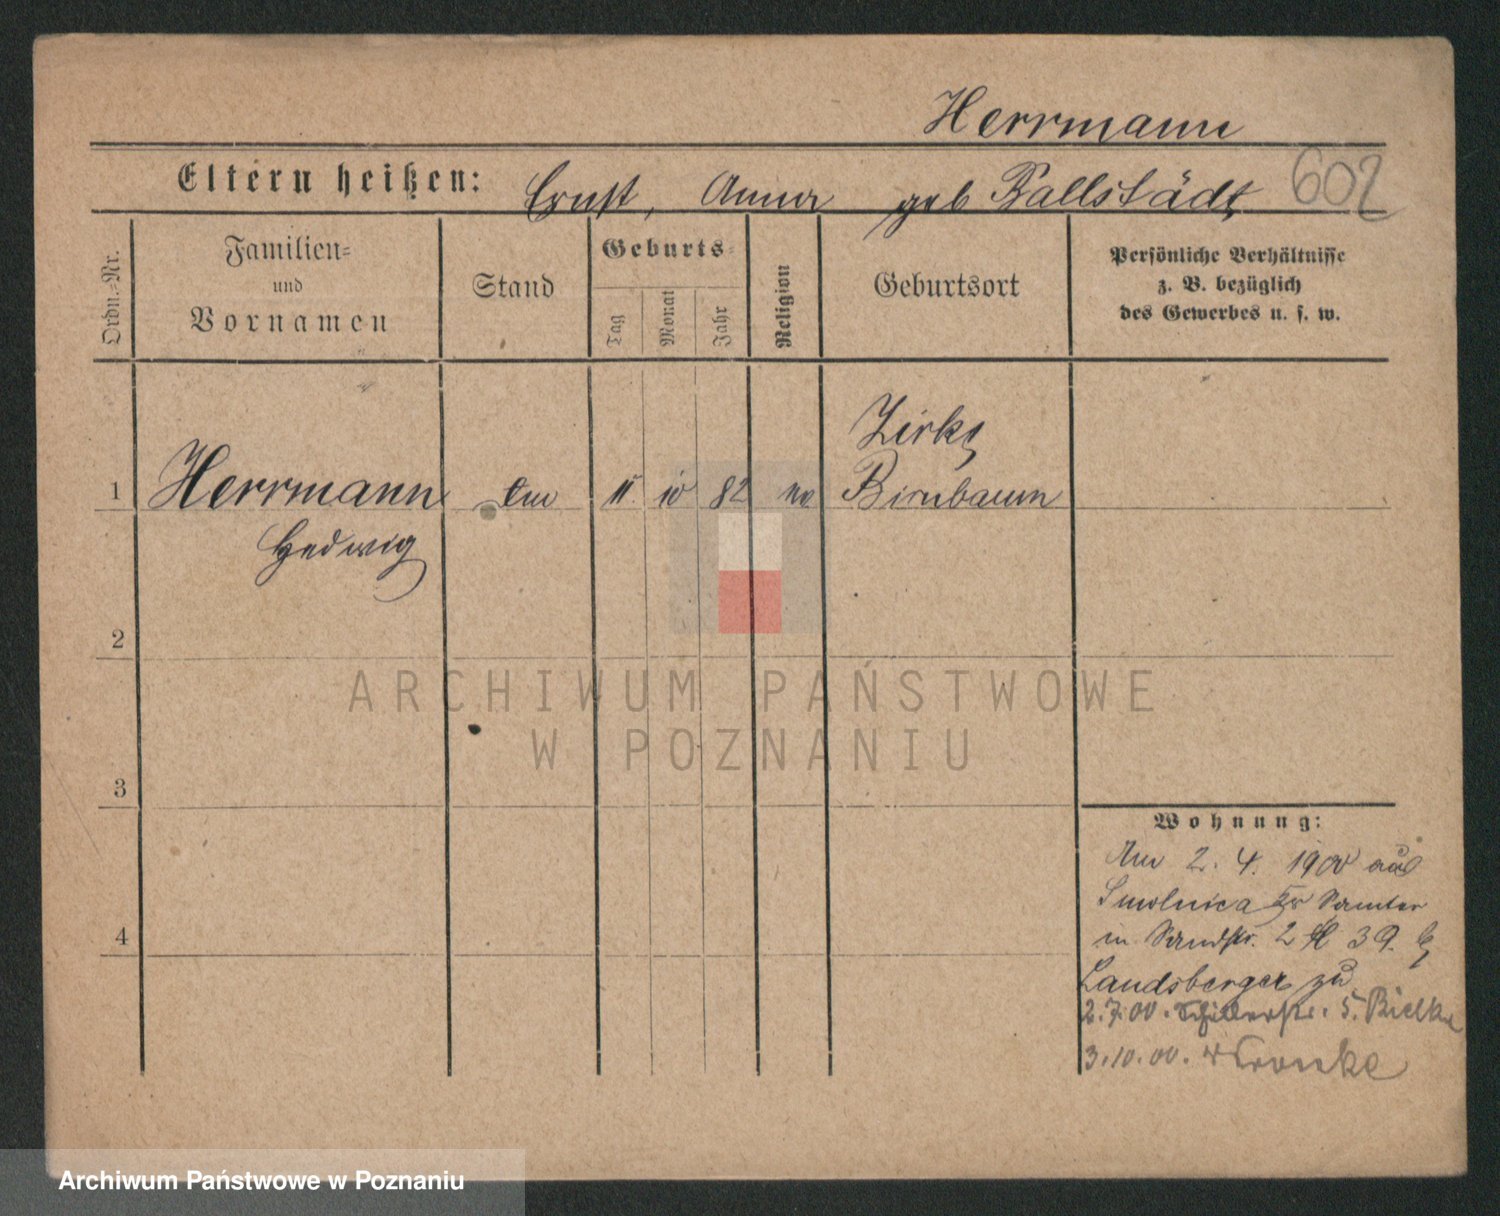 Herrmann
Eltern heißen: Ernst, Anna geb Ballstädt 602
Ordn.=Nr.
Familien=
und
Vornamen
Stand
Geburts=
Tag
Monat
Jahr
Religion
Geburtsort
Persönliche Verhältnisse
z. B. bezüglich
des Gewerbes u. s. w.
Zirke
1 Herrmann 11 10 82 ev Birnbaum
Hedwig
2
ARCHIWUM PAŃSTWOWE
W POZNANIU
3
Wohnung:
Am 2. 4. 1900 aus
Smolnica Kr Samter
in Sandstr. 2 39. b
4
Landsberger zu
2.7.00. Schillerstr. 5. Bielke
3.10.00. Wronke
Archiwum Państwowe w Poznaniu